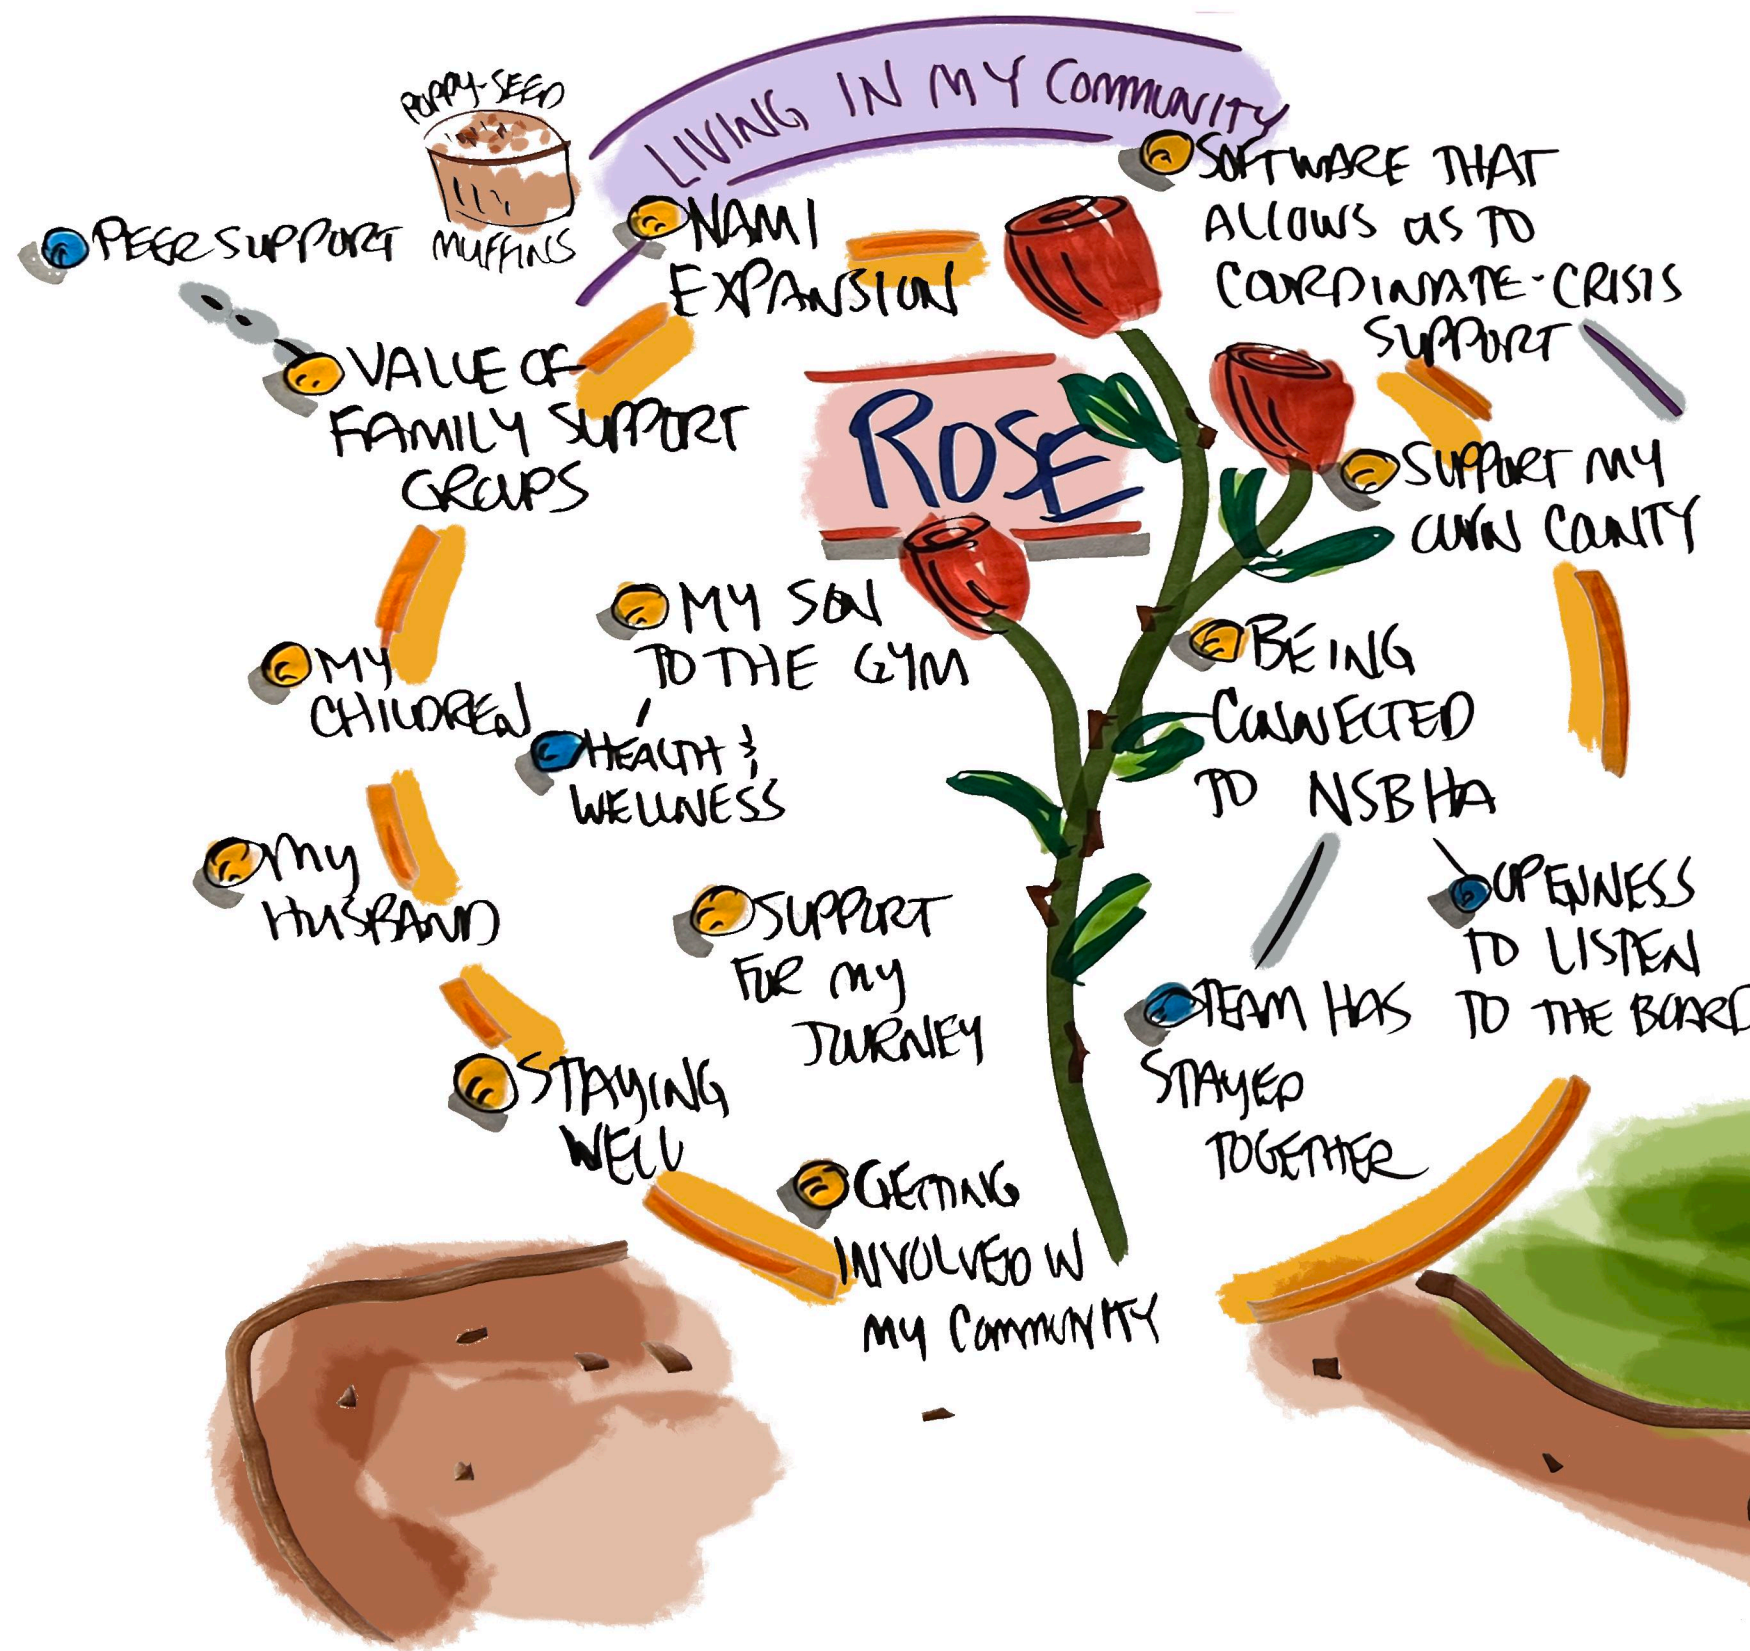 LIVING IN MY COMMUNITY
POPPY-SEED
MUFFINS
PEER SUPPORT
NAMI
EXPANSION
SOFTWARE THAT
ALLOWS US TO
COORDINATE-CRISIS
SUPPORT
VALUE OF
FAMILY SUPPORT
GROUPS
ROSE
SUPPORT MY
OWN COUNTY
MY SON
TO THE GYM
HEALTH &
WELLNESS
BEING
CONNECTED
TO NSBHA
MY
CHILDREN
MY
HUSBAND
SUPPORT
FOR MY
JOURNEY
OPENNESS
TO LISTEN
TO THE BOARD
TEAM HAS
STAYED
TOGETHER
STAYING
WELL
GETTING
INVOLVED IN
MY COMMUNITY